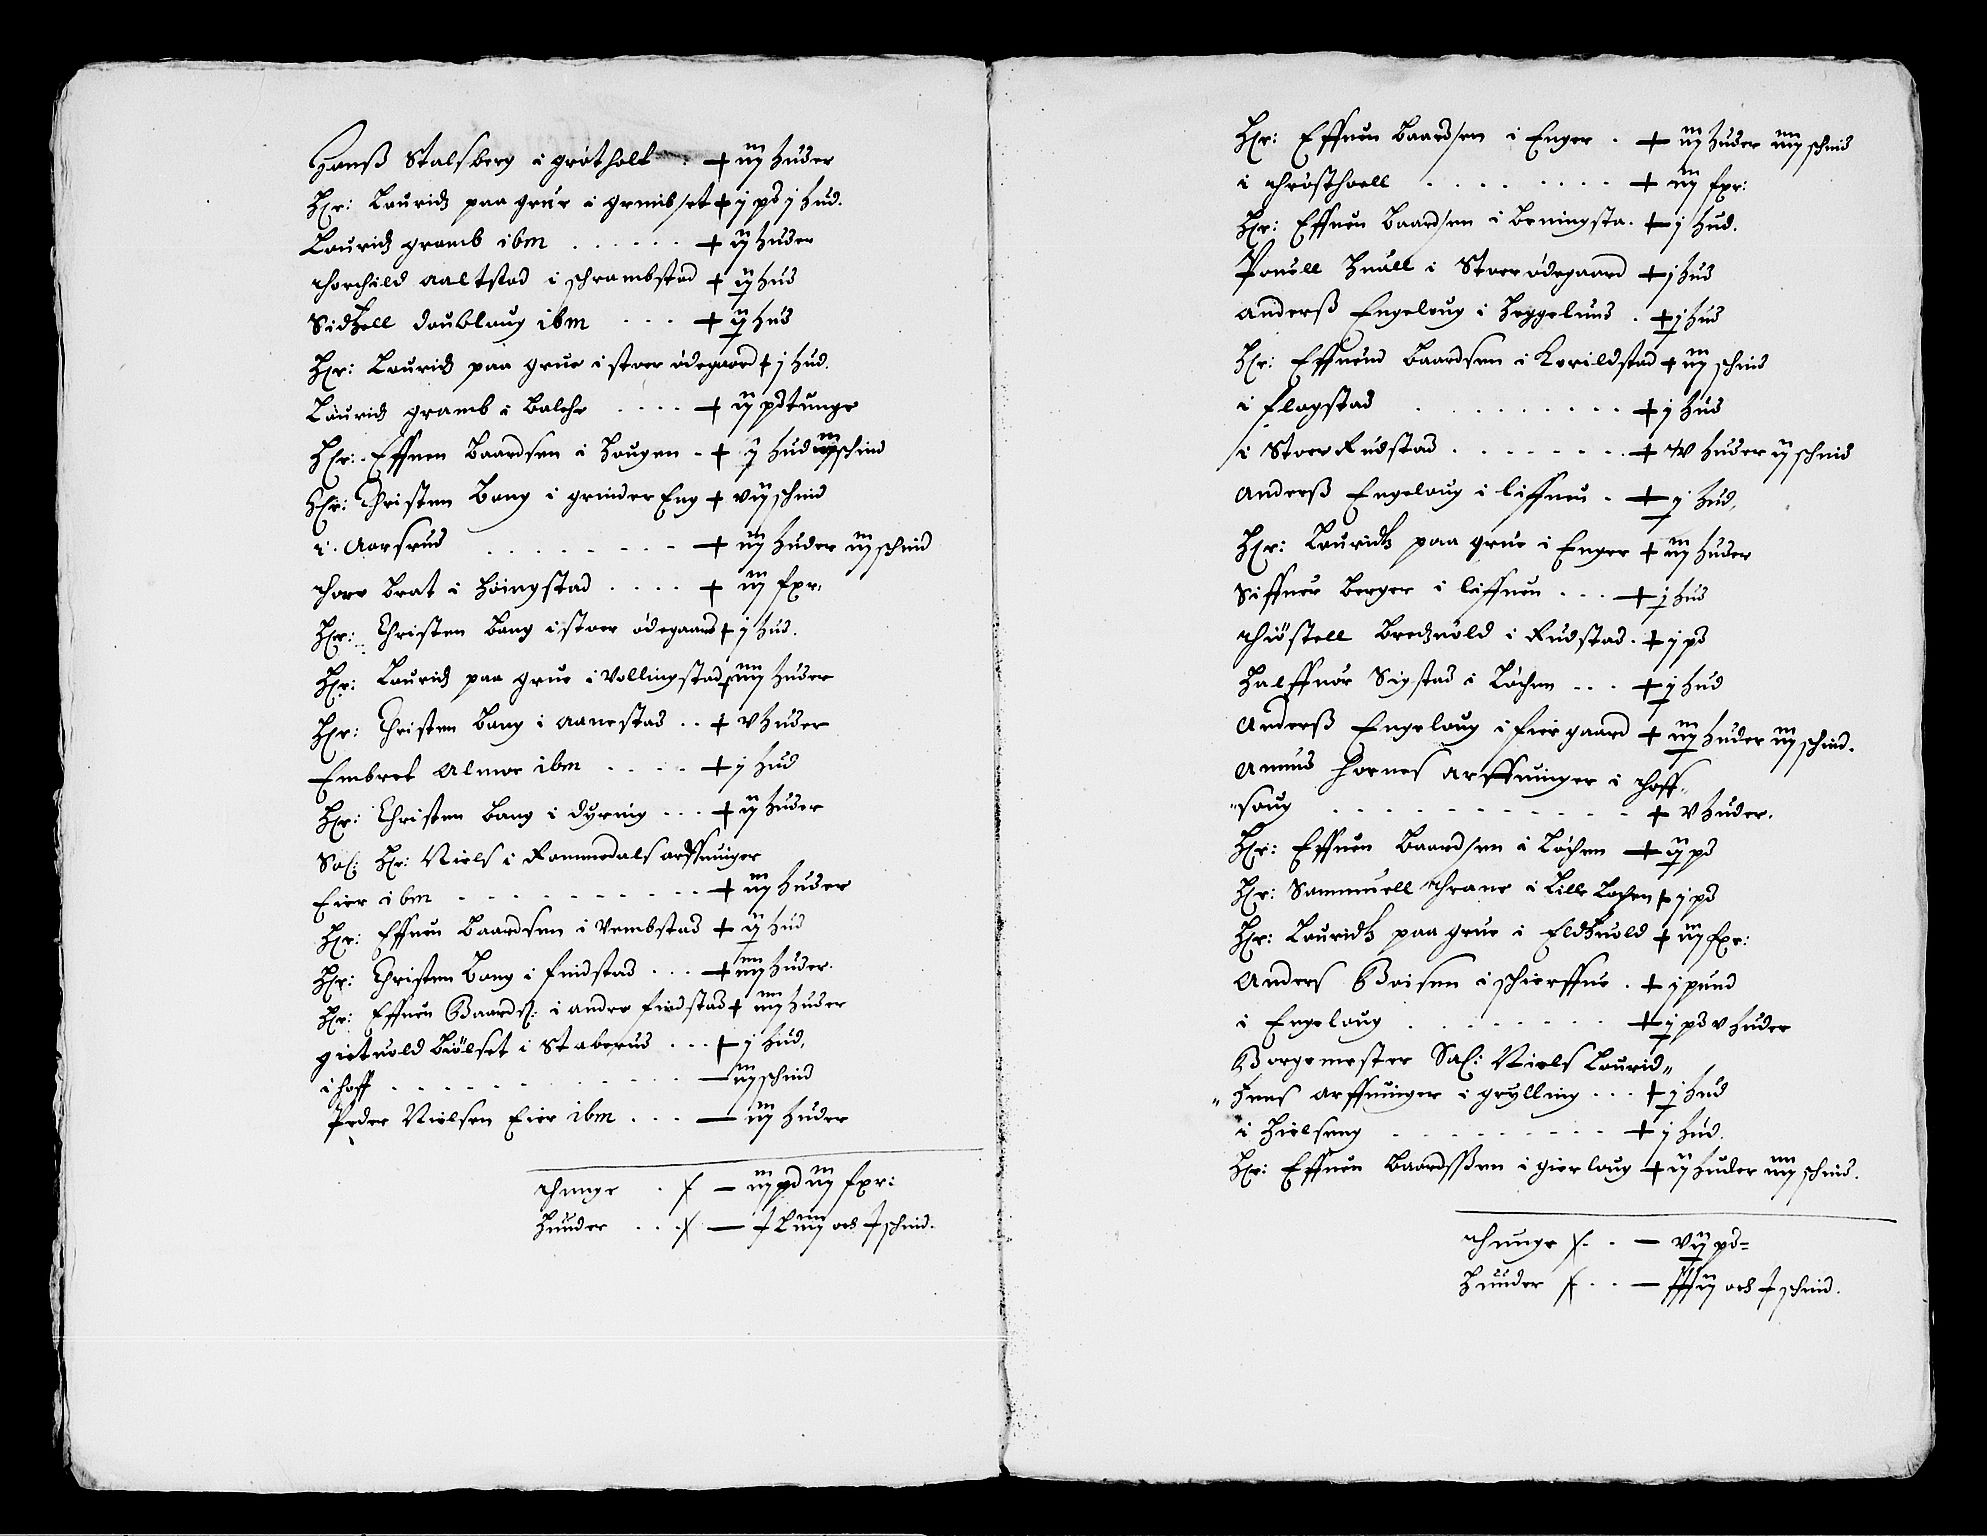 Hanß Stalsberg i grøtholt . + iij huder
Hr: Lauridz paa grue i grimbset + j pd j hud.
Lauridz gramb ibm . . . . . . + ij huder
Thorchild aaltstad i schrambstad + ij hud
Sidzell daubloug ibm . . . + ij hud
Hr: Lauridz paa grue i stoer ødegaard + j hud.
Lauridz gramb i Balche . . . . + ij pd tunge
Hr: Effuen Baardsen i Haugen . + j hud iij schind
Hr: Christen Bang i grinder Eng + vij schind
i Aarsrud . . . . . . . + iij huder iij schind
Thore Brat i Høingstad . . . . + iij fxr.
Hr: Christen Bang i stoer ødegaard + j hud.
Hr: Lauridz paa grue i Vollingstad + iiij huder
Hr: Christen Bang i Aanestad . . + v huder
Embret Almoe ibm . . . . + j hud
Hr: Christen Bang i dyring . . . + ij huder
Sal: Hr: Niels i Rommedals arffuinger
Eier ibm . . . . . . . . . . + iij huder
Hr: Effuen Baardsen i Vembstad + ij hud
Hr: Christen Bang i findstad . . . + iiij huder.
Hr: Effuen Baards: i andre findstad + iiij huder
gietuold Biølset i Staberud . . . + j hud,
i hoff . . . . . . . . . . . — iij schind
Peder Nielsen Eier ibm . . . — iij huder
Thunge . — iij pd iij fxr:
Huuder . . . — I L iiij och I schind.
Hr: Effuen Baardsen i Enger . + iij huder iiij schind
i Thrøsthoell . . . . . . . . + iij fxr:
Hr: Effuen Baardsen i Beningsta. + j hud.
Pouell Huall i Stoer ødegaard + j hud
Anderß Engeloug i Heggelund . + j hud
Hr: Effuend Baardsen i Korildstad + iij schind
i flagstad . . . . . . . . . + j hud
i Stoer Rudstad . . . . . . . + iv huder ij schind
Anderß Engeloug i liffuen . + j hud,
Hr: Lauridtz paa grue i Enger + iij huder
Siffuer Berger i liffuen . . . + j hud
Thiøstell Bredzuold i Rudstad. + j pd
Halffuor Sigstad i Løchen . . . + j hud
Anderß Engeloug i fiergaard + iij huder iij schind.
Amund hornes arffuinger i Thoff„
„saug . . . . . . . . . . . + v huder.
Hr: Effuen Baardsen i Løchen + ij pd
Hr: Sammuell Thrane i Lille Løchen + j pd
Hr: Lauridtz paa grue i Eldzuold + iij fxr:
Anders Boisen i schierffue . + j pund
i Engeloug . . . . . . . . + j pd v huder
Borgemester Sal: Niels Laurid„
„tzens arffuinger i grylling . . . + j hud
i Hielseng . . . . . . . . . + j hud.
Hr: Effuen Baardssen i gierloug + ij huder iiij schind.
Thunge . . — vij pd
Huuder . . — ij och I schind.